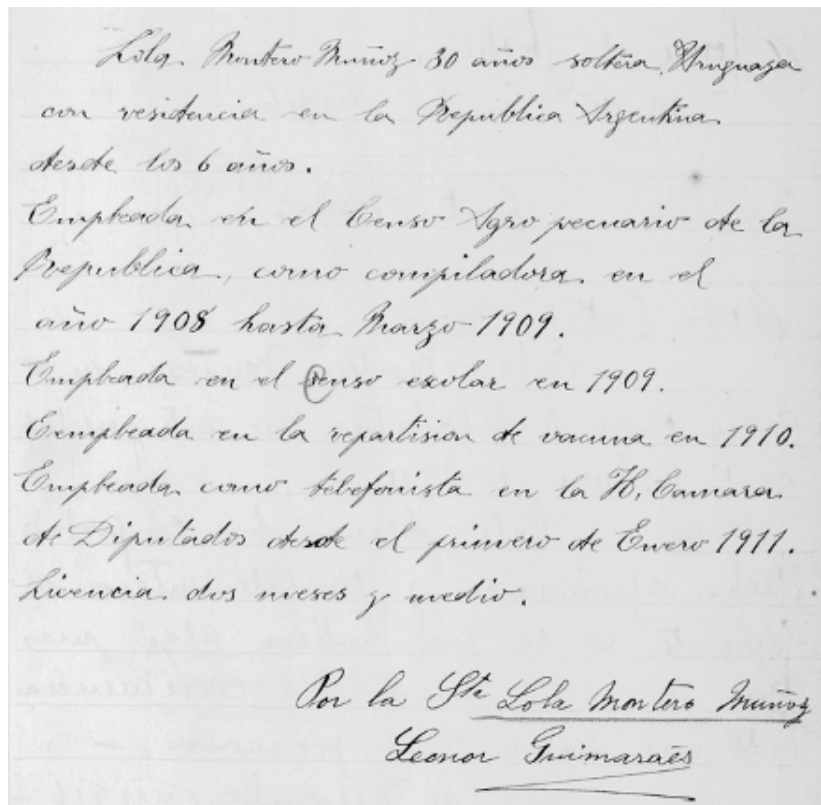 Lola Montero Muñoz 30 años soltera Uruguaya
con residencia en la Republica Argentina
desde los 6 años.
Empleada en el Censo Agro pecuario de la
Republica, como compiladora en el
año 1908 hasta Marzo 1909.
Empleada en el Censo escolar en 1909.
Eempleada en la repartision de vacuna en 1910.
Empleada como telefonista en la H, Camara
de Diputados desde el primero de Enero 1911.
Licencia dos meses y medio.
Por la Sta Lola Montero Muñoz
Leonor Guimaraēs